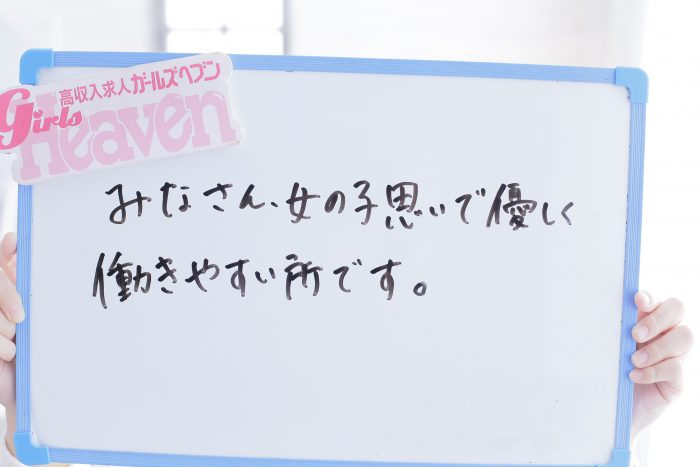 高収入求人ガールズヘブン
Girls
Heaven
みなさん、女の子思いで優しく
働きやすい所です。